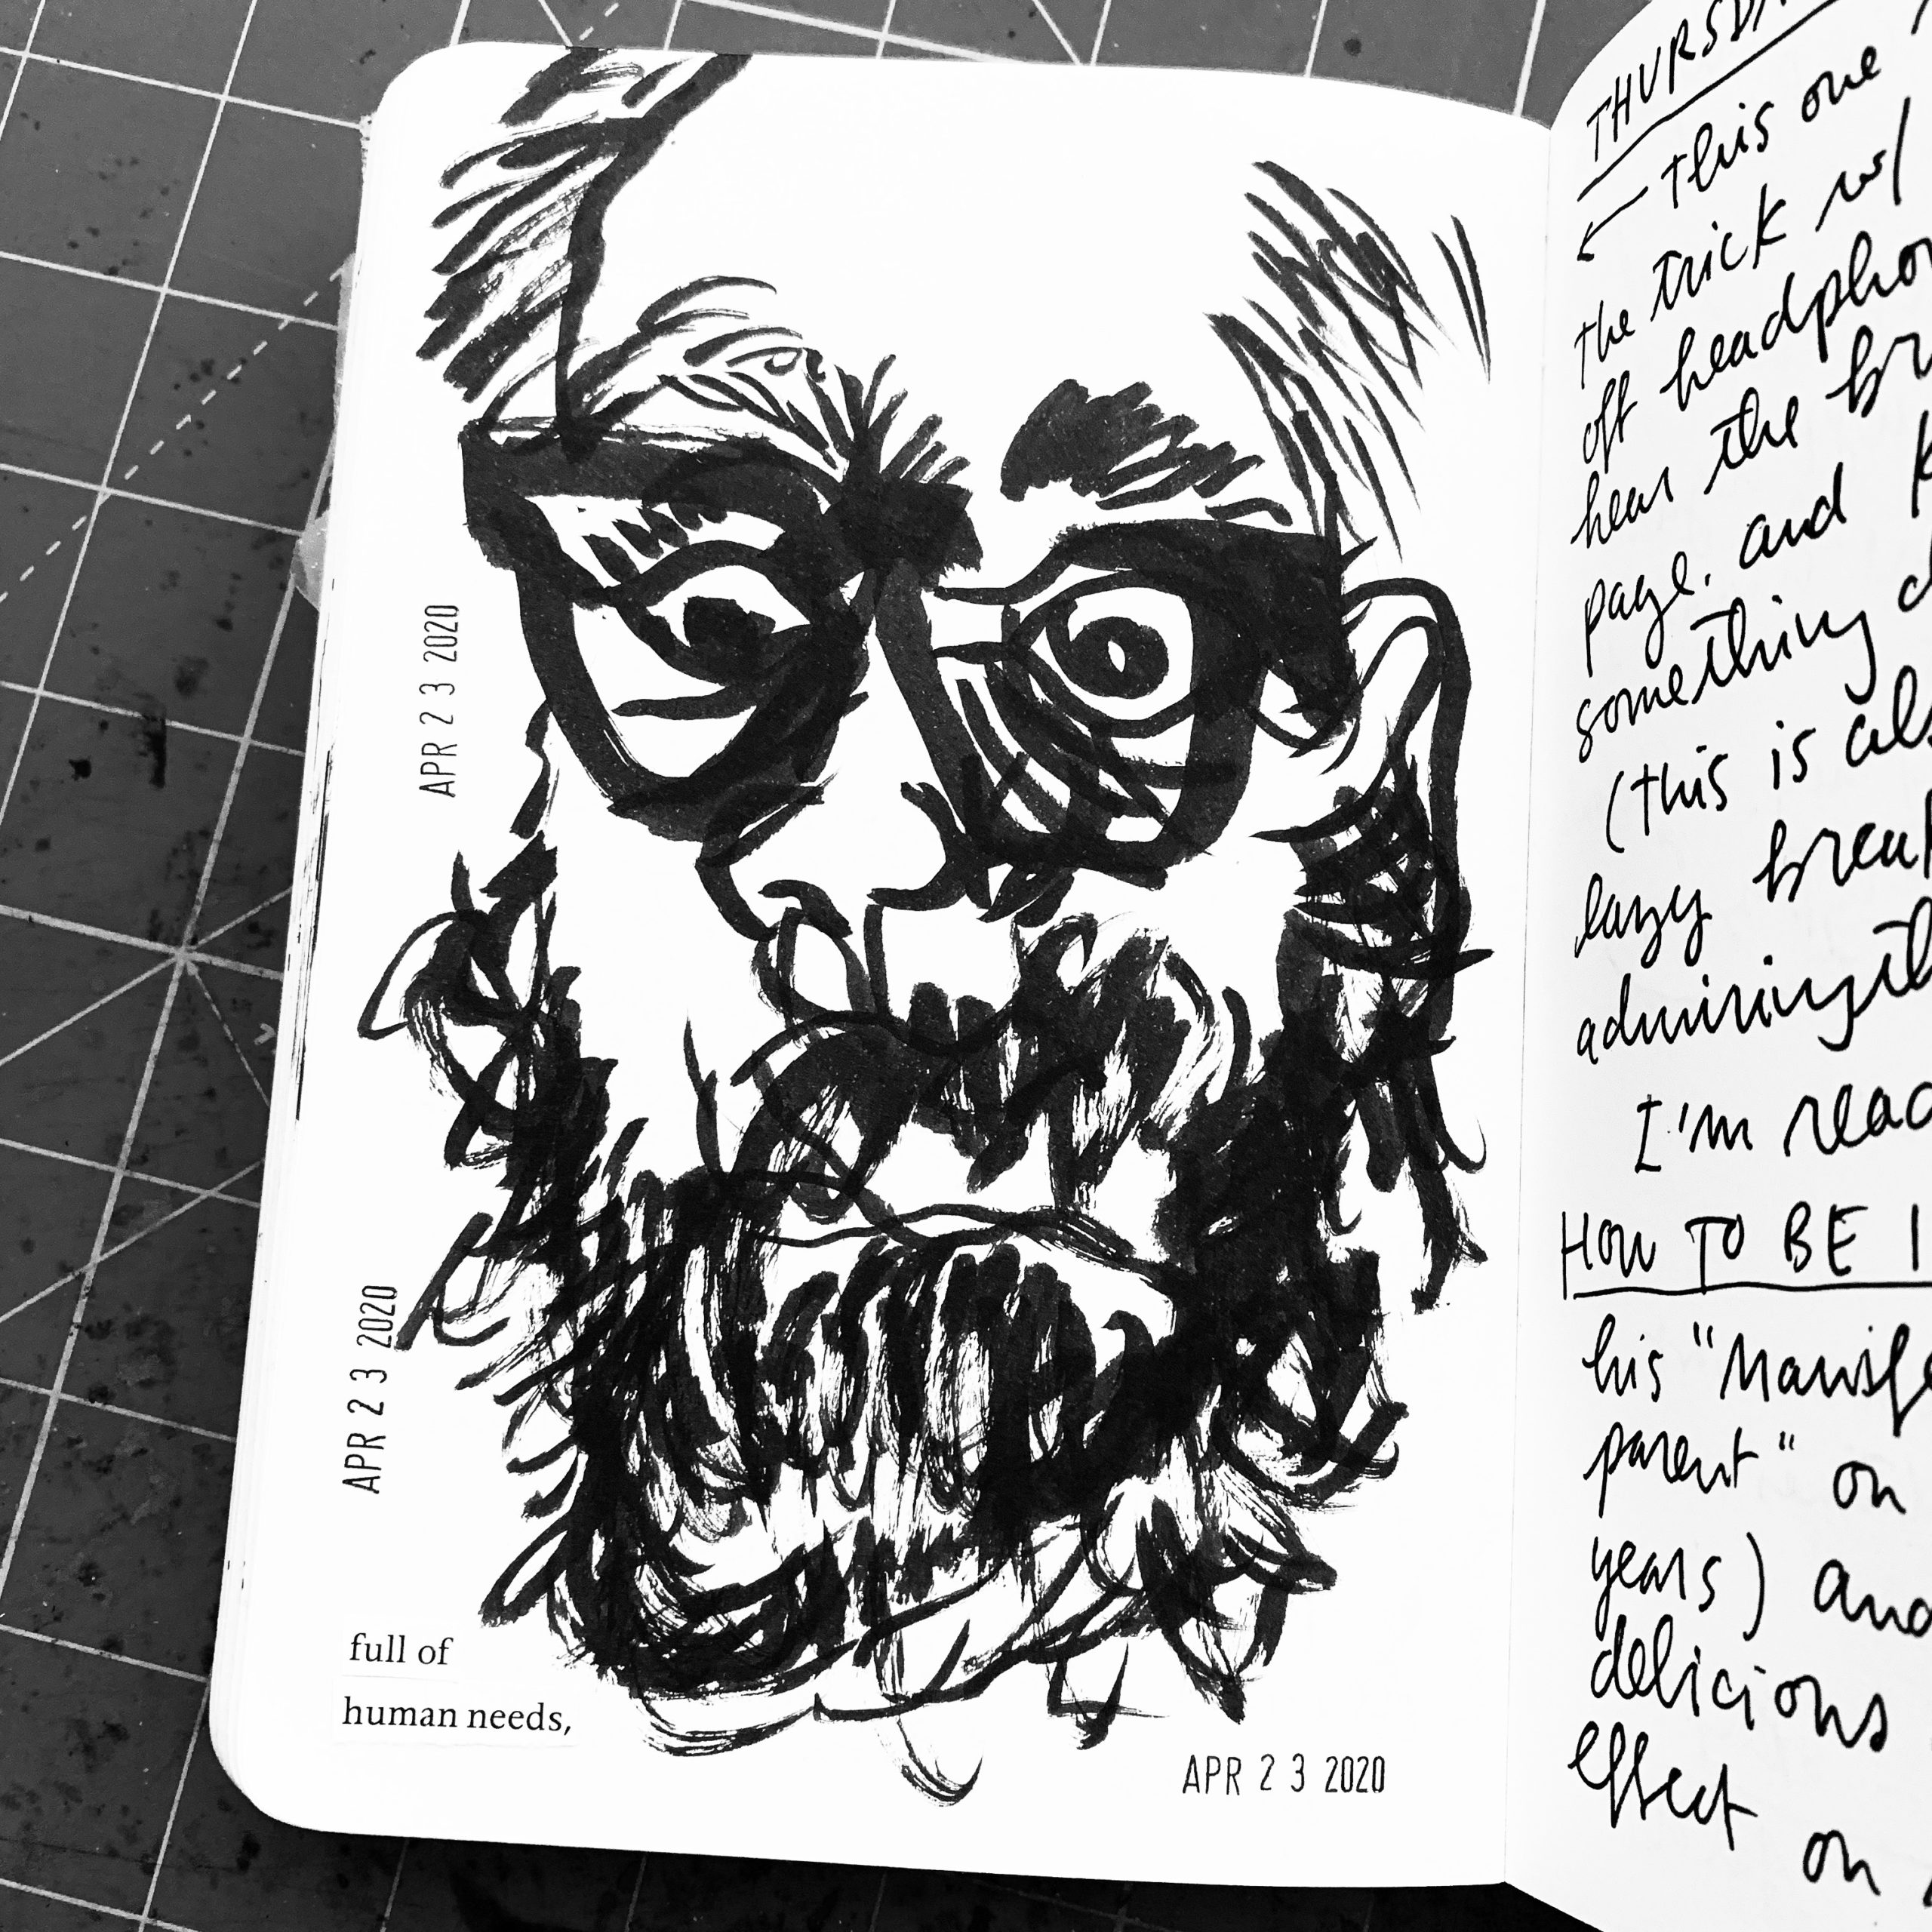 APR 23 2020
APR 23 2020
full of
human needs,
APR 23 2020
THURSDA
← This one
the trick w/
off headpho
hear the br
page. and k
something d
(this is als
lazy break
admiring th
I'm read
HOW TO BE I
his "Manife
parent" on
years) and
delicious
effect on